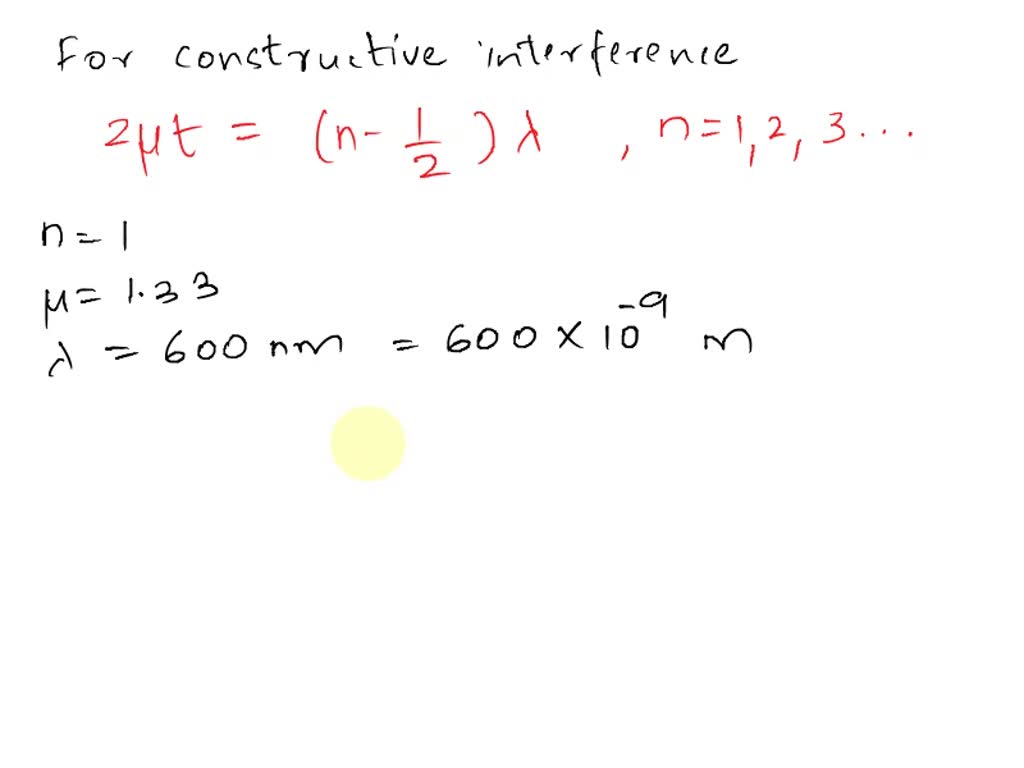 For constructive interference
2μt = (n - 1/2) λ , n = 1, 2, 3 ...
n = 1
μ = 1.33
λ = 600 nm = 600 × 10⁻⁹ m